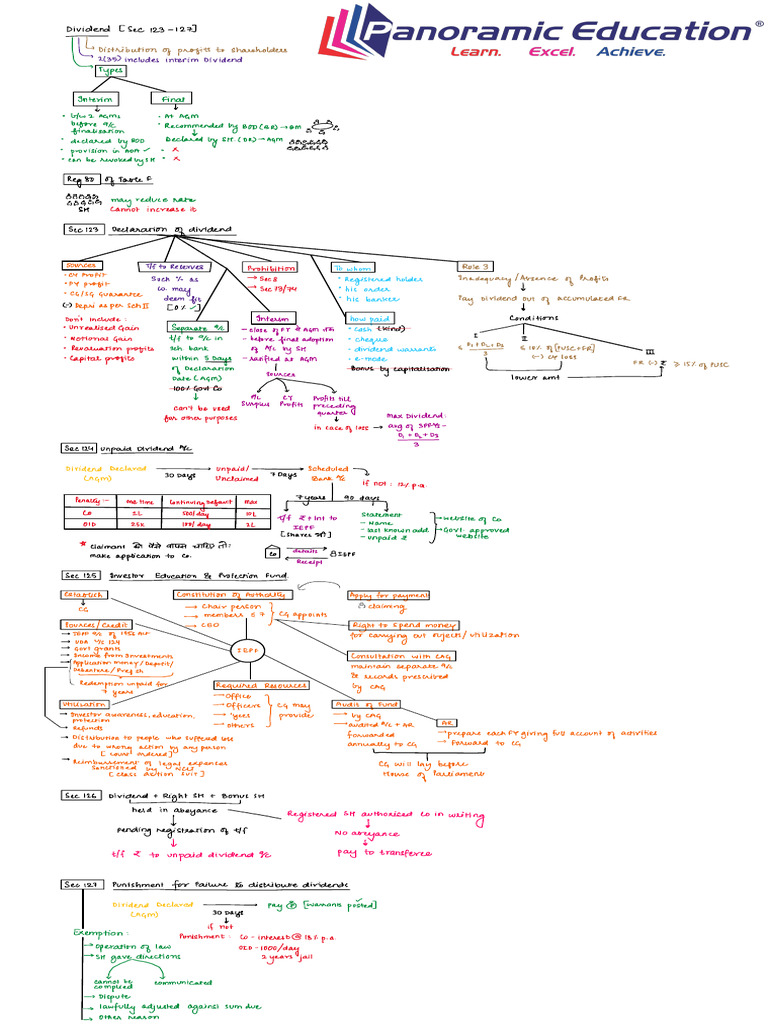 Panoramic Education®
Learn. Excel. Achieve.
Dividend [Sec 123-127]
Distribution of profits to shareholders
2(35) includes Interim Dividend
Types
Interim
Final
b/w 2 AGMs
before a/c
finalisation
declared by BOD
provision in AOA ✓
can be revoked by SH
At AGM
Recommended by BOD (BR) → BM
Declared by SH (OR) → AGM
x
x
Reg 80 of Table F
SH
may reduce rate
Cannot increase it
Sec 123 Declaration of dividend
Sources
CY Profit
PY profit
CG/SG Guarantee
(-) Depri as per Sch II
Don't include :
Unrealised Gain
Notional Gain
Revaluation profits
Capital profits
T/f to Reserves
Such % as
Co. may
deem fit
[0%✓]
Separate a/c
t/f to a/c in
sch bank
within 5 Days
of Declaration
Date (AGM)
100% Govt Co
can't be used
for other purposes
Prohibition
→ Sec 8
→ Sec 73/74
Interim
before final adoption
of A/c by SH
ratified as AGM
Sources
P/L
Surplus
CY
Profits
Profits till
preceding
quarter
in case of loss
Max Dividend:
D₁ + D₂ + D₃
3
To whom
Registered holder
his order
his banker
how paid
cash (kind)
cheque
dividend warrants
e-mode
Bonus by capitalisation
Rule 3
Inadequacy/Absence of Profits
Pay Dividend out of accumulated FR
Conditions
I
≤ D₁ + D₂ + D₃
3
II
≤ 10% of [PUSC+FR]
(-) CY loss
III
FR (-) ₹ ≥ 15% of PUSC
lower amt
Sec 124 Unpaid Dividend A/c
Dividend Declared
(AGM)
30 Days
Unpaid/
Unclaimed
7 Days
Scheduled
Bank a/c
if not : 12% p.a.
Penalty :- one time Continuing Default Max
Co 1L 500/day 10L
OID 25K 100/day 2L
7 years
t/f ₹ + Int to
IEPF
[Shares भी]
90 days
Statement
- Name
- last known add.
- unpaid ₹
website of Co
Govt. approved
website
* Claimant को पैसे वापस चाहिए तो:
make application to Co.
Co
details
Receipt
IEPF
Sec 125 Investor Education & Protection Fund
Establish
CG
Constitution of Authority
→ Chair person
→ members ≤ 7
→ CEO
CG appoints
Apply for payment
claiming
Sources/Credit
UDA u/s 124
Govt grants
Income from Investments
Application money/Deposit/
Debenture/Pref sh
Redemption unpaid for
7 years
IEPF
Right to spend money
for carrying out objects/utilization
Consultation with CAG
maintain separate a/c
& records prescribed
by CAG
Utilisation
Investor awareness, education,
protection
Refunds
Distribution to people who suffered loss
due to wrong action by any person
[Court ordered]
Reimbursement of legal expenses
sanctioned by NCLT
[Class Action Suit]
Required Resources
→ Office
→ Officers
→ Others
CG may
provide
Audit of Fund
→ by CAG
→ audited A/c + AR
forwarded
annually to CG
AR
→ prepare each FY giving full account of activities
→ Forward to CG
CG will lay before
House of Parliament
Sec 126 Dividend + Right SH + Bonus SH
held in abeyance
pending registration of t/f
t/f ₹ to unpaid dividend a/c
Registered SH authorised Co in writing
No abeyance
pay to transferee
Sec 127 Punishment for Failure to distribute dividends
Dividend Declared
(AGM)
30 Days
Pay ₹ [warrants posted]
if not
Punishment : Co - interest @ 18% p.a.
OID - 1000/day
2 years jail
Exemption :
Operation of law
SH gave directions
cannot be
complied
communicated
Dispute
lawfully adjusted against sum due
Other reason